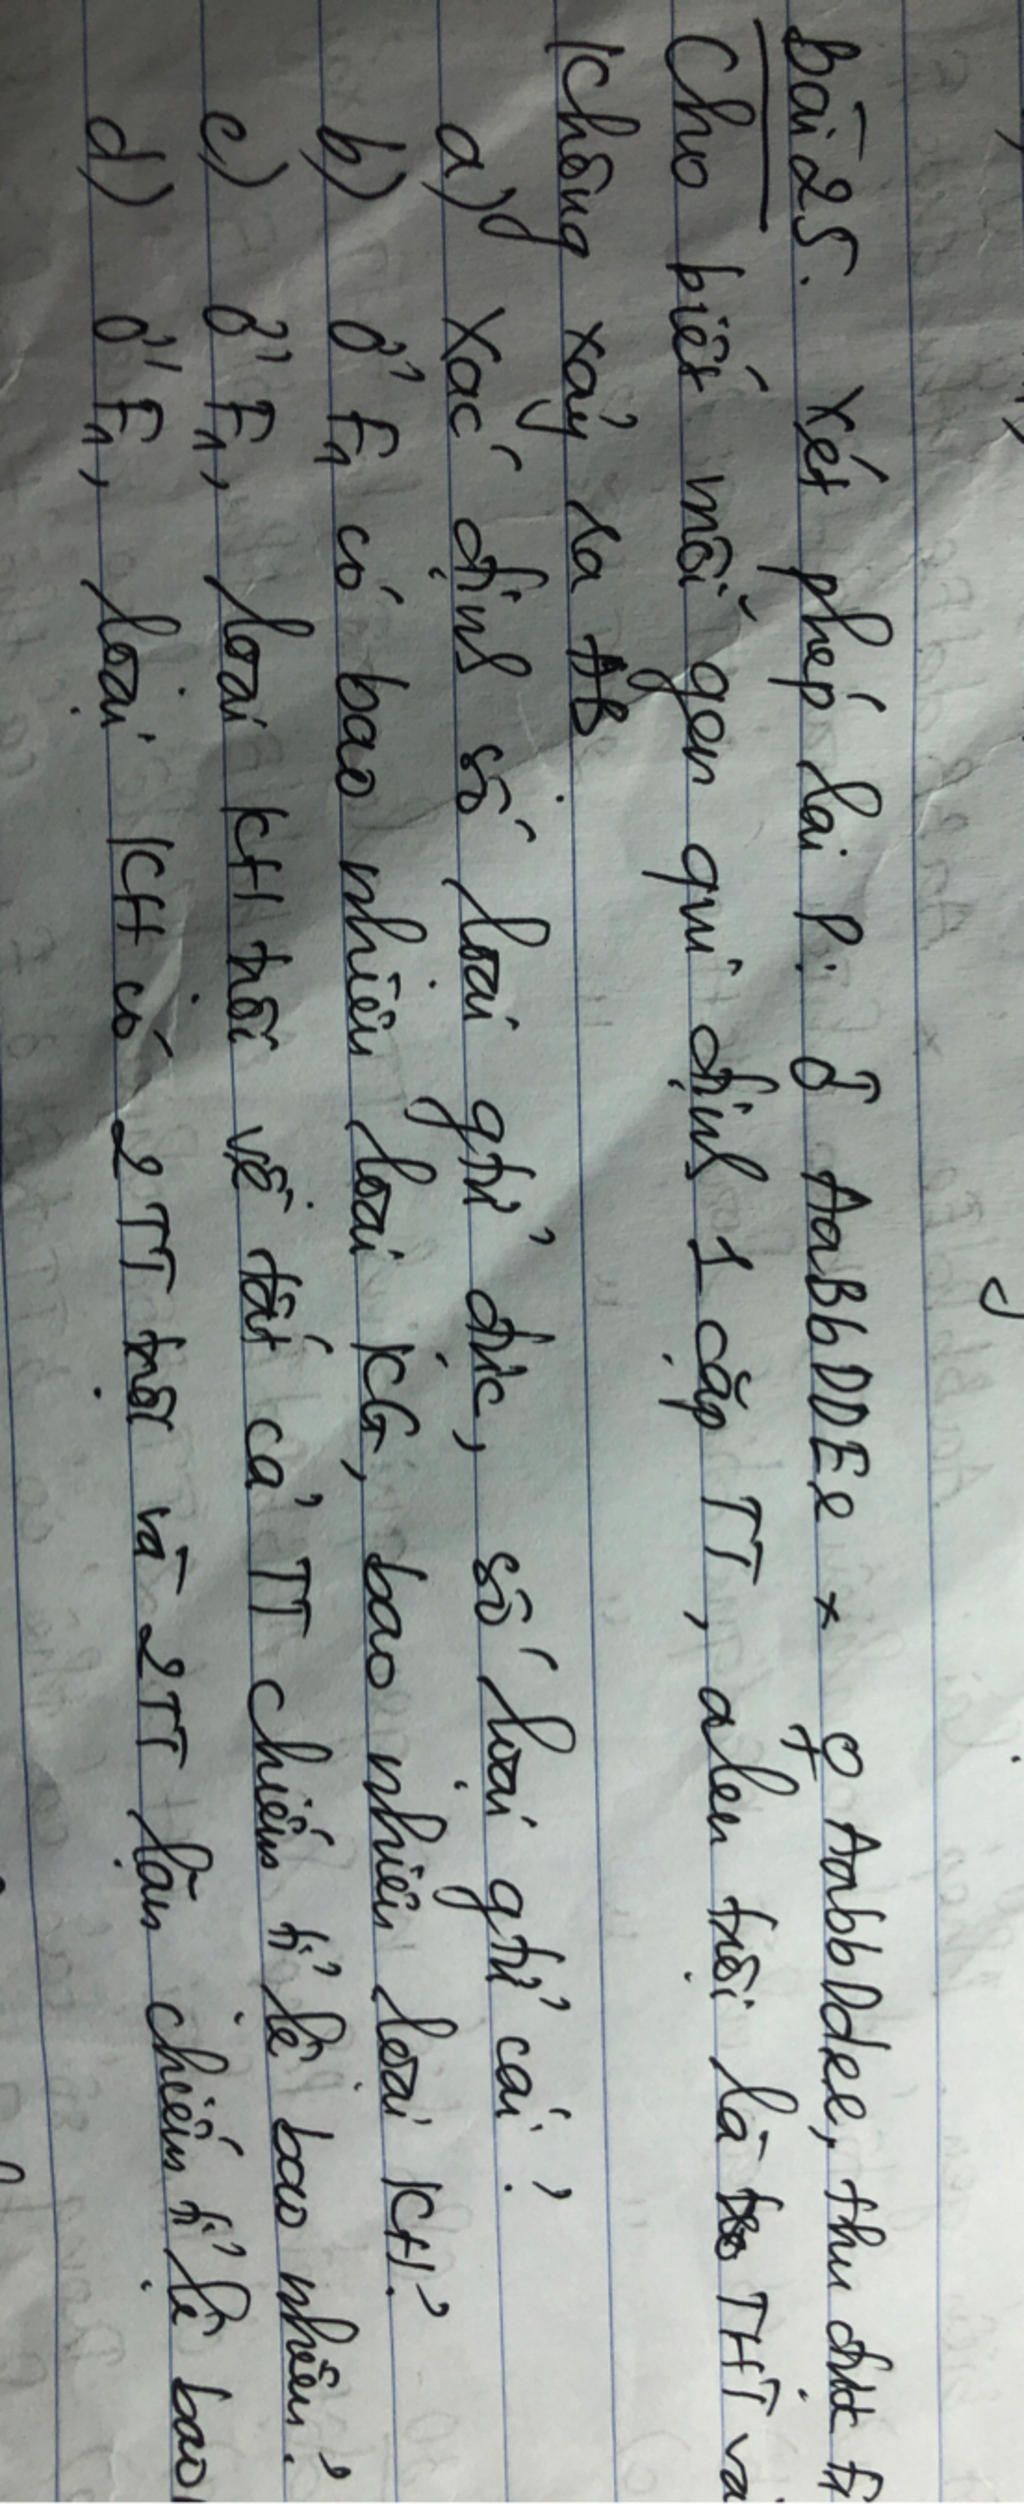 bài 25. Xét phép lai P: ♂ AaBbDDEe x ♀ AabbDdee, thu được F1
Cho biết mỗi gen qui định 1 cặp TT, alen trội là THT và
không xảy ra ĐB
a) Xác định số loại gtử đực, số loại gtử cái?
b) Ở F1 có bao nhiêu loại KG, bao nhiêu loại KH?
c) Ở F1, loại KH trội về tất cả TT chiếm tỉ lệ bao nhiêu?
d) Ở F1, loại KH có 2 TT trội và 2TT lặn chiếm tỉ lệ bao